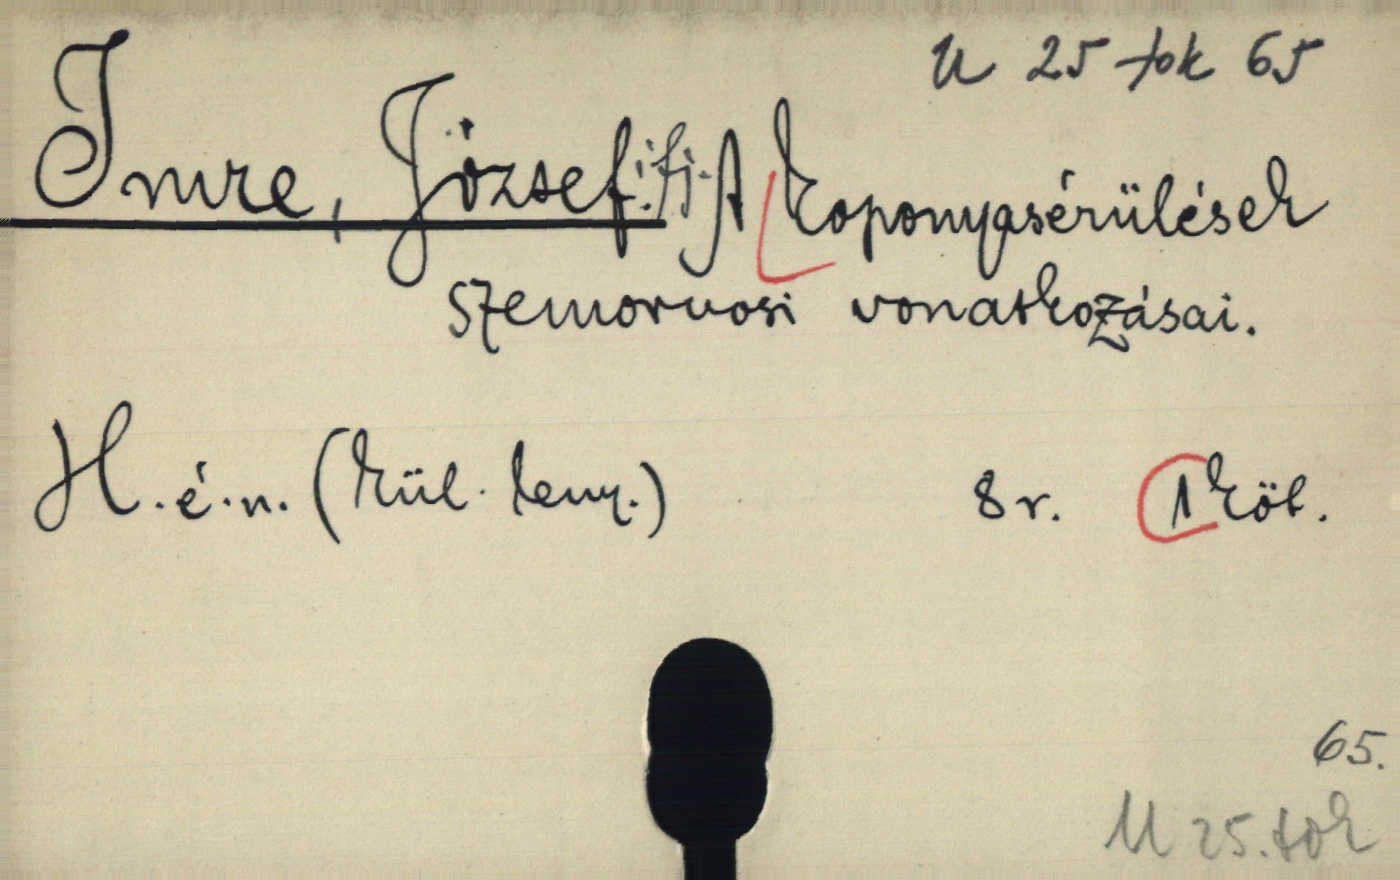 U 25 tok 65
Imre, József: ifj. A koponyasérülések
szemorvosi vonatkozásai.
H. é. n. (Kül. leny.) 8 r. 1 köt.
65.
U 25. tok